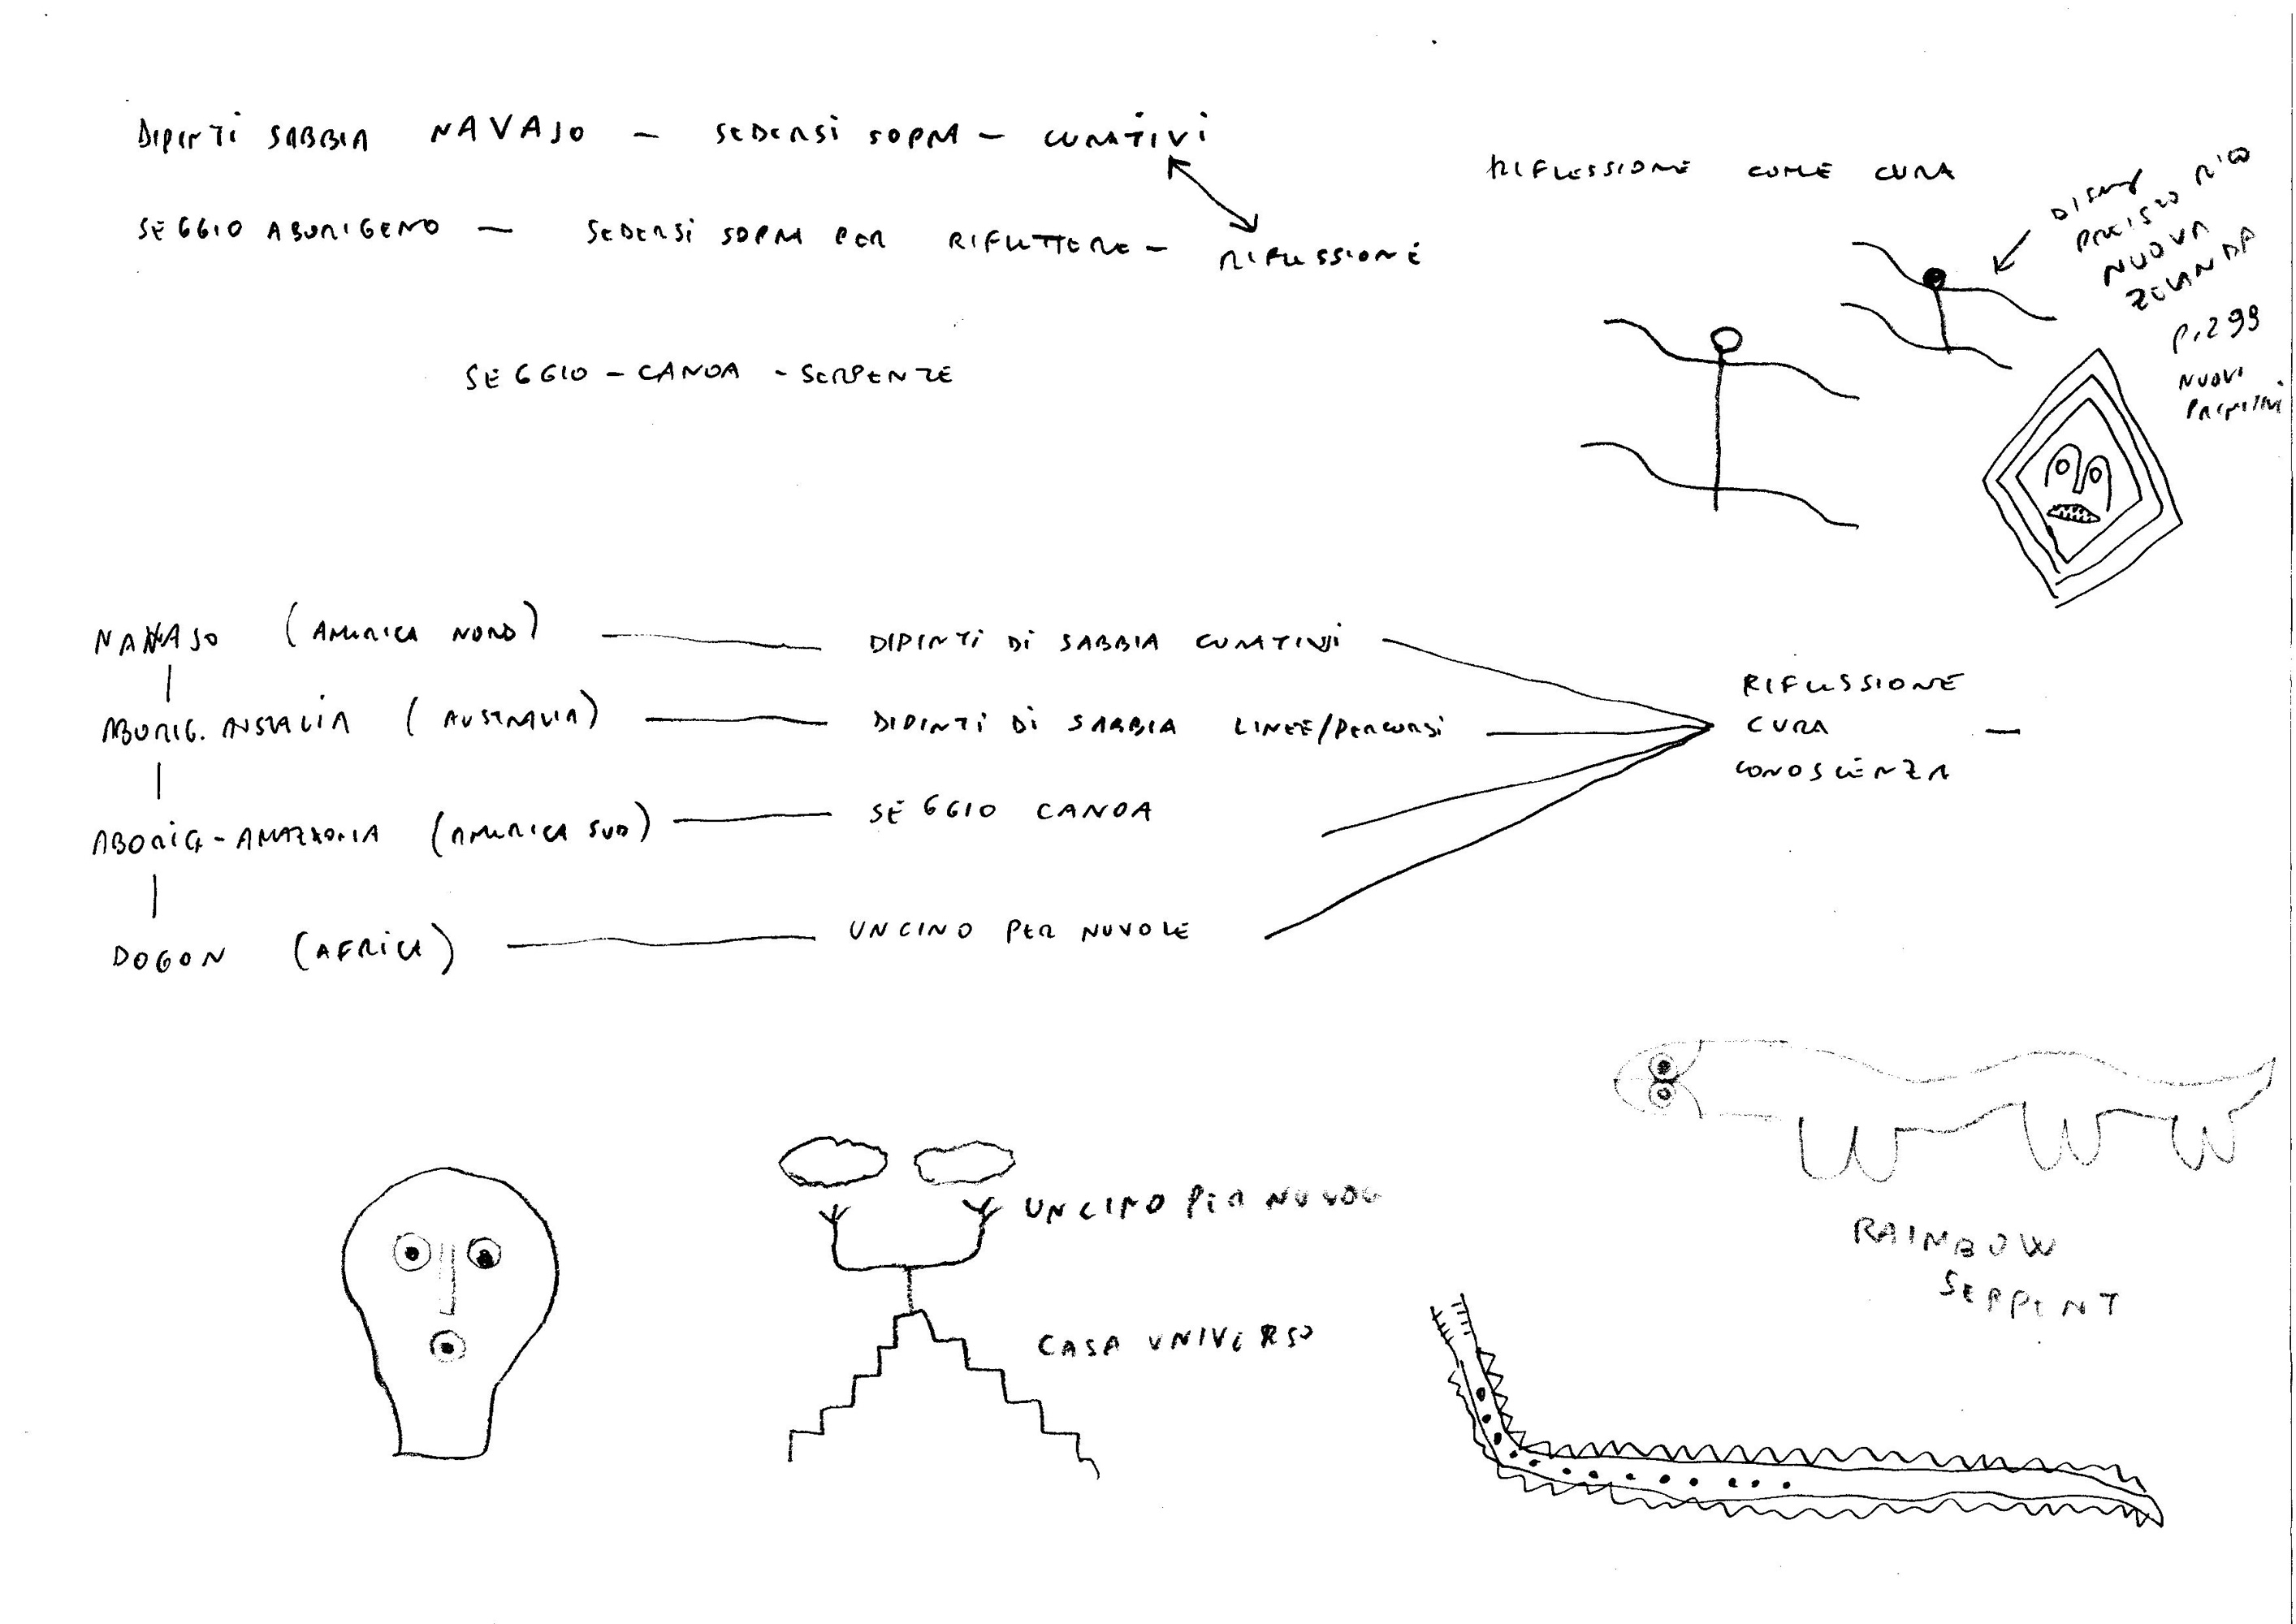 DIPINTI SABBIA NAVAJO – SEDERSI SOPRA – CURATIVI
SEGGIO ABORIGENO – SEDERSI SOPRA PER RIFLETTERE – RIFLESSIONE
RIFLESSIONE COME CURA
SEGGIO – CANOA – SERPENTE
PRECISO
NUOVA
ZELANDA
P. 299
NUOVI
PRIMITIVI
NAVAJO (AMERICA NORD) DIPINTI DI SABBIA CURATIVI
ABORIG. AUSTRALIA (AUSTRALIA) DIPINTI DI SABBIA LINEE/PERCORSI
ABORIG-AMAZZONIA (AMERICA SUD) SEGGIO CANOA
DOGON (AFRICA) UNCINO PER NUVOLE
RIFLESSIONE
CURA
CONOSCENZA
UNCINO PER NUVOLE
CASA UNIVERSO
RAINBOW
SERPENT